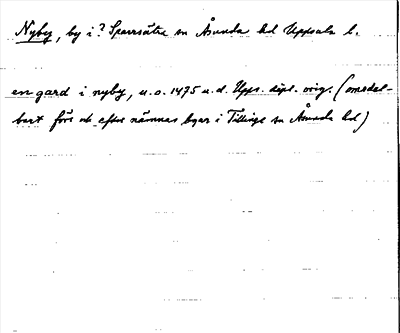 Nyby, by i? Sparrsätra sn Åsunda hd Uppsala l.
en gard i nyby, u.o. 1475 u.d. Upps. dipl. orig. (omedel-
bart före och efter nämnas byar i Tillinge sn Åsunda hd)